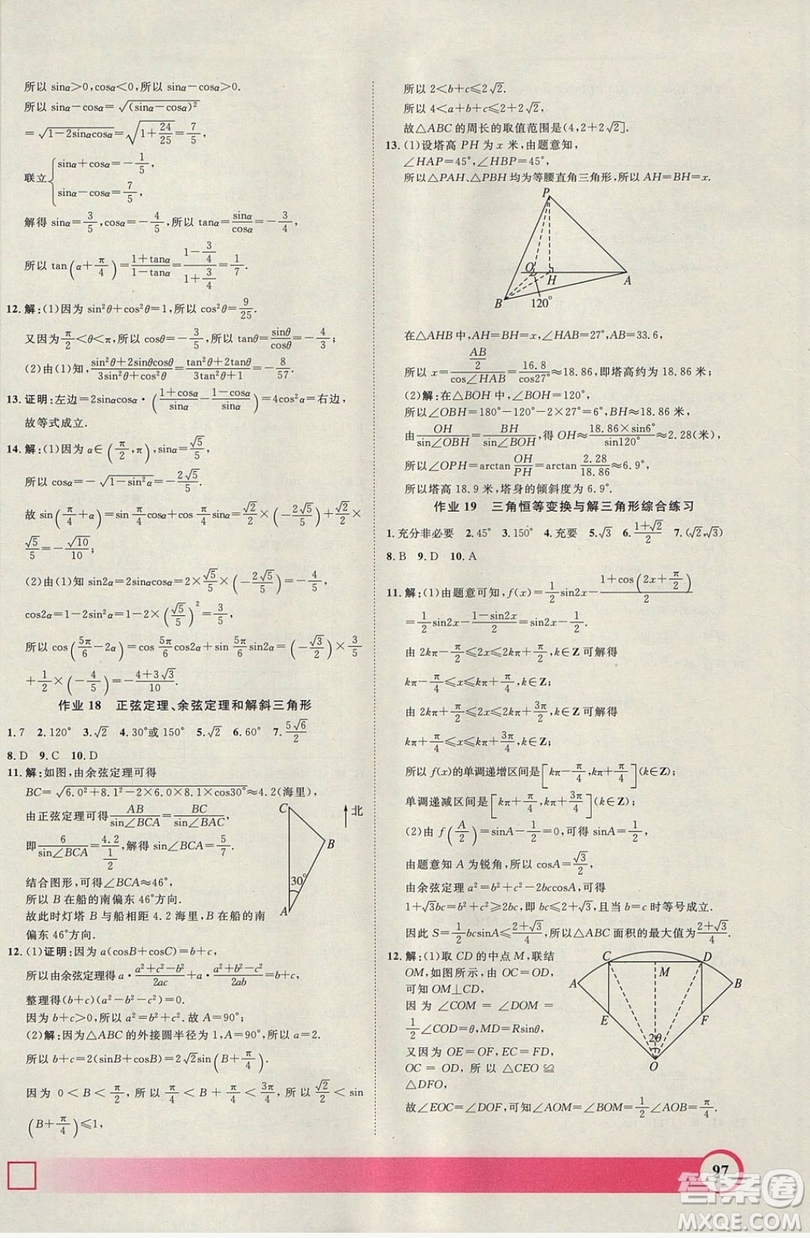 所以 sinα>0,cosα<0,所以 sinα−cosα>0.
所以 sinα−cosα=√((sinα−cosα)²)
=√(1−2sinαcosα)=√(1+24/25)=7/5,
联立{sinα+cosα=−1/5, sinα−cosα=7/5,
解得 sinα=3/5,cosα=−4/5,所以 tanα=sinα/cosα=−3/4,
所以 tan(α+π/4)=(1+tanα)/(1−tanα)=(1−3/4)/(1+3/4)=1/7.
12.解:(1)因为 sin²θ+cos²θ=1,所以 cos²θ=9/25.
又因为 π/2<θ<π,所以 cosθ=−3/5,所以 tanθ=sinθ/cosθ=−4/3;
(2)由(1)知,(sin²θ+2sinθcosθ)/(3sin²θ+cos²θ)=(tan²θ+2tanθ)/(3tan²θ+1)=−8/57.
13.证明:左边=2sinαcosα·((1+cosα)/sinα−(1−cosα)/sinα)=4cos²α=右边,
故等式成立.
14.解:(1)因为 α∈(π/2,π),sinα=√5/5,
所以 cosα=−√(1−sin²α)=−2√5/5.
故 sin(π/4+α)=sin π/4 cosα+cos π/4 sinα=√2/2×(−2√5/5)+√2/2×
√5/5=−√10/10;
(2)由(1)知 sin2α=2sinαcosα=2×√5/5×(−2√5/5)=−4/5,
cos2α=1−2sin²α=1−2×(√5/5)²=3/5,
所以 cos(5π/6−2α)=cos 5π/6 cos2α+sin 5π/6 sin2α=(−√3/2)×3/5
+1/2×(−4/5)=−(4+3√3)/10.
作业 18 正弦定理、余弦定理和解斜三角形
1.7 2.120° 3.√2 4.30°或 150° 5.√2 6.60° 7.5√6/2
8.D 9.C 10.D
11.解:如图,由余弦定理可得
BC=√(6.0²+8.1²−2×6.0×8.1×cos30°)≈4.2(海里).
由正弦定理可得 AB/sin∠BCA=BC/sin∠BAC,
即 6/sin∠BCA=4.2/(1/2),解得 sin∠BCA=5/7.
结合图形,可得∠BCA≈46°,
所以 B 在船的南偏东 46°方向.
故此时灯塔 B 与船相距 4.2 海里,B 在船的南
偏东 46°方向.
C
北
B
30°
A
12.(1)证明:因为 a(cosB+cosC)=b+c,
所以由余弦定理得 a·(a²+c²−b²)/2ac+a·(a²+b²−c²)/2ab=b+c,
整理得(b+c)(a²−b²−c²)=0,
因为 b+c>0,所以 a²=b²+c²,故 A=90°;
(2)解:因为△ABC 的外接圆半径为 1,A=90°,所以 a=2.
所以 b+c=2(sinB+cosB)=2√2sin(B+π/4).
因为 0<B<π/2,所以 π/4<B+π/4<3π/4,所以 √2/2<sin
(B+π/4)≤1,
所以 2<b+c≤2√2.
所以 4<a+b+c≤2+2√2,
故△ABC 的周长的取值范围是(4,2+2√2].
13.(1)设塔高 PH 为 x 米,由题意知,
∠HAP=45°,∠HBP=45°,
所以△PAH、△PBH 均为等腰直角三角形,所以 AH=BH=x.
P
O H A
B 120°
在△AHB 中,AH=BH=x,∠HAB=27°,AB=33.6,
所以 x=(AB/2)/cos∠HAB=16.8/cos27°≈18.86,即塔高约为 18.86 米;
(2)解:在△BOH 中,∠BOH=120°,
所以∠OBH=180°−120°−2×27°=6°,BH=x=18.86,
由 OH/sin∠OBH=BH/sin∠BOH,得 OH≈18.86×sin6°/sin120°≈2.28(米),
所以∠OPH=arctan OH/PH≈arctan 2.28/18.86≈6.9°,
所以塔高 18.9 米,塔身的倾斜度为 6.9°.
作业 19 三角恒等变换与解三角形综合练习
1.充分非必要 2.45° 3.150° 4.充要 5.√3 6.(1+√2)/2 7.(√2,√3)
8.B 9.D 10.A
11.解:(1)由题意可知,f(x)=1/2 sin2x−(1+cos(2x+π/2))/2
=1/2 sin2x−(1−sin2x)/2=sin2x−1/2.
由 2kπ−π/2≤2x≤2kπ+π/2,k∈Z 可解得
kπ−π/4≤x≤kπ+π/4,k∈Z;
由 2kπ+π/2≤2x≤2kπ+3π/2,k∈Z 可解得
kπ+π/4≤x≤kπ+3π/4,k∈Z;
所以 f(x)的单调递增区间是[kπ−π/4,kπ+π/4](k∈Z);
单调递减区间是[kπ+π/4,kπ+3π/4](k∈Z);
(2)由 f(A/2)=sinA−1/2=0,可得 sinA=1/2,
由题意知 A 为锐角,所以 cosA=√3/2,
由余弦定理 a²=b²+c²−2bccosA,可得
1+√3bc=b²+c²≥2bc,即 bc≤2+√3,当且当 b=c 时等号成立.
因此 S=1/2 bcsinA≤(2+√3)/4,所以△ABC 面积的最大值为(2+√3)/4.
12.解:(1)取 CD 的中点 M,联结
OM,如图所示,由 OC=OD,
可知 OM⊥CD,
因为∠COM=∠DOM=
1/2∠COD=θ,MD=Rsinθ,
又因为 OE=OF,EC=FD,
OC=OD,所以△CEO≌
△DFO,
故∠EOC=∠DOF,可知∠AOM=∠BOM=1/2∠AOB=π/4,
C M D
A B
E F
2θ
O
97
答案圈
MXQE.COM